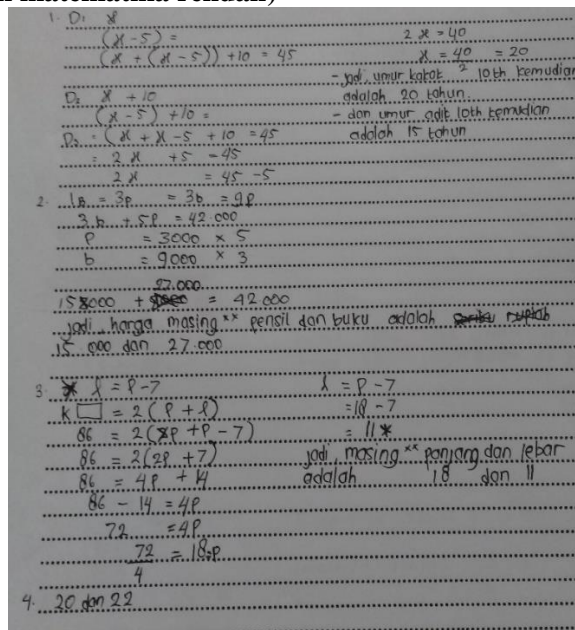 matematika rendah)
1. D1 x
(x - 5) =
(x + (x - 5)) + 10 = 45
D2 x + 10
(x - 5) + 10 =
D3 = (x + x - 5 + 10 = 45
= 2x + 5 = 45
2x = 45 - 5
2x = 40
x = 40 = 20
2
- jadi umur kakak 10th kemudian
adalah 20 tahun.
- dan umur adit 10th kemudian
adalah 15 tahun
2. 1b = 3p = 3b = 9p
3b + 5p = 42.000
p = 3000 x 5
b = 9000 x 3
27.000
15 000 + = 42 000
jadi harga masing xx pensil dan buku adalah rupiah
15 000 dan 27.000
3. l = p - 7
k □ = 2(p + l)
86 = 2(p + p - 7)
86 = 2(2p + 7)
86 = 4p + 14
86 - 14 = 4p
72 = 4p
72 = 18 = p
4
l = p - 7
= 18 - 7
= 11
jadi masing xx panjang dan lebar
adalah 18 dan 11
4. 20 dan 22